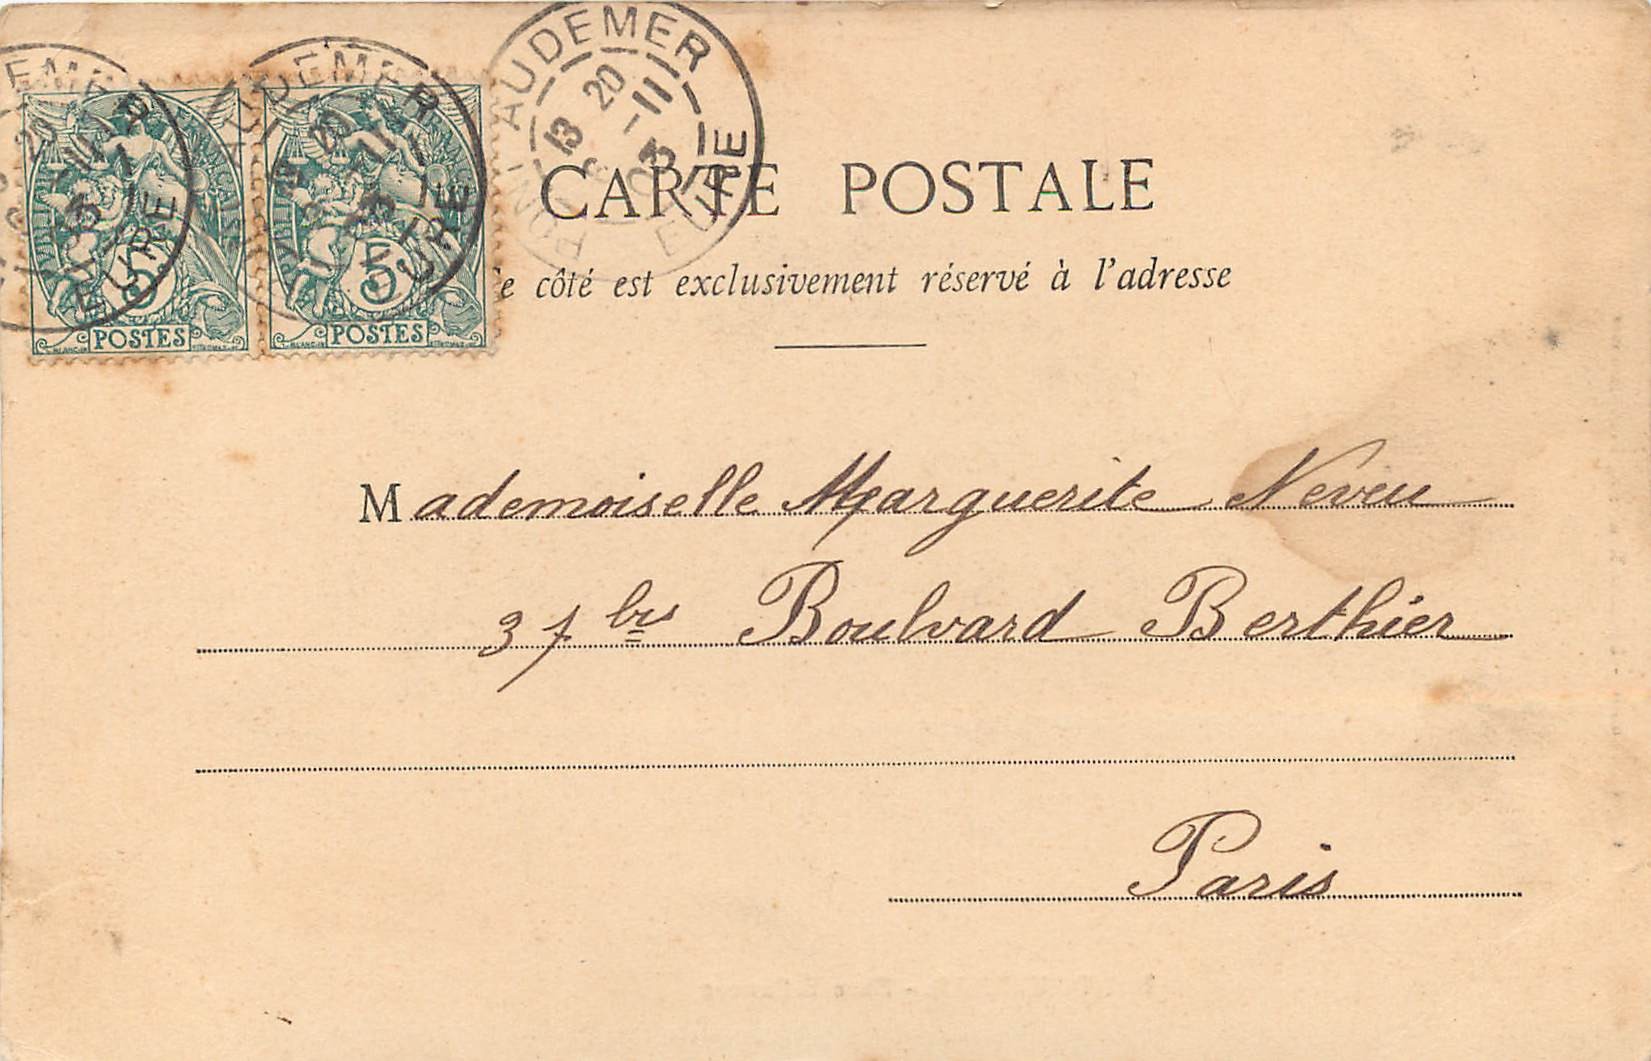 PONT AUDEMER
13 20 -11 03
EURE
CARTE POSTALE
Ce côté est exclusivement réservé à l'adresse
5 5
POSTES POSTES
Mademoiselle Marguerite Neveu
37 bis Boulvard Berthier
Paris